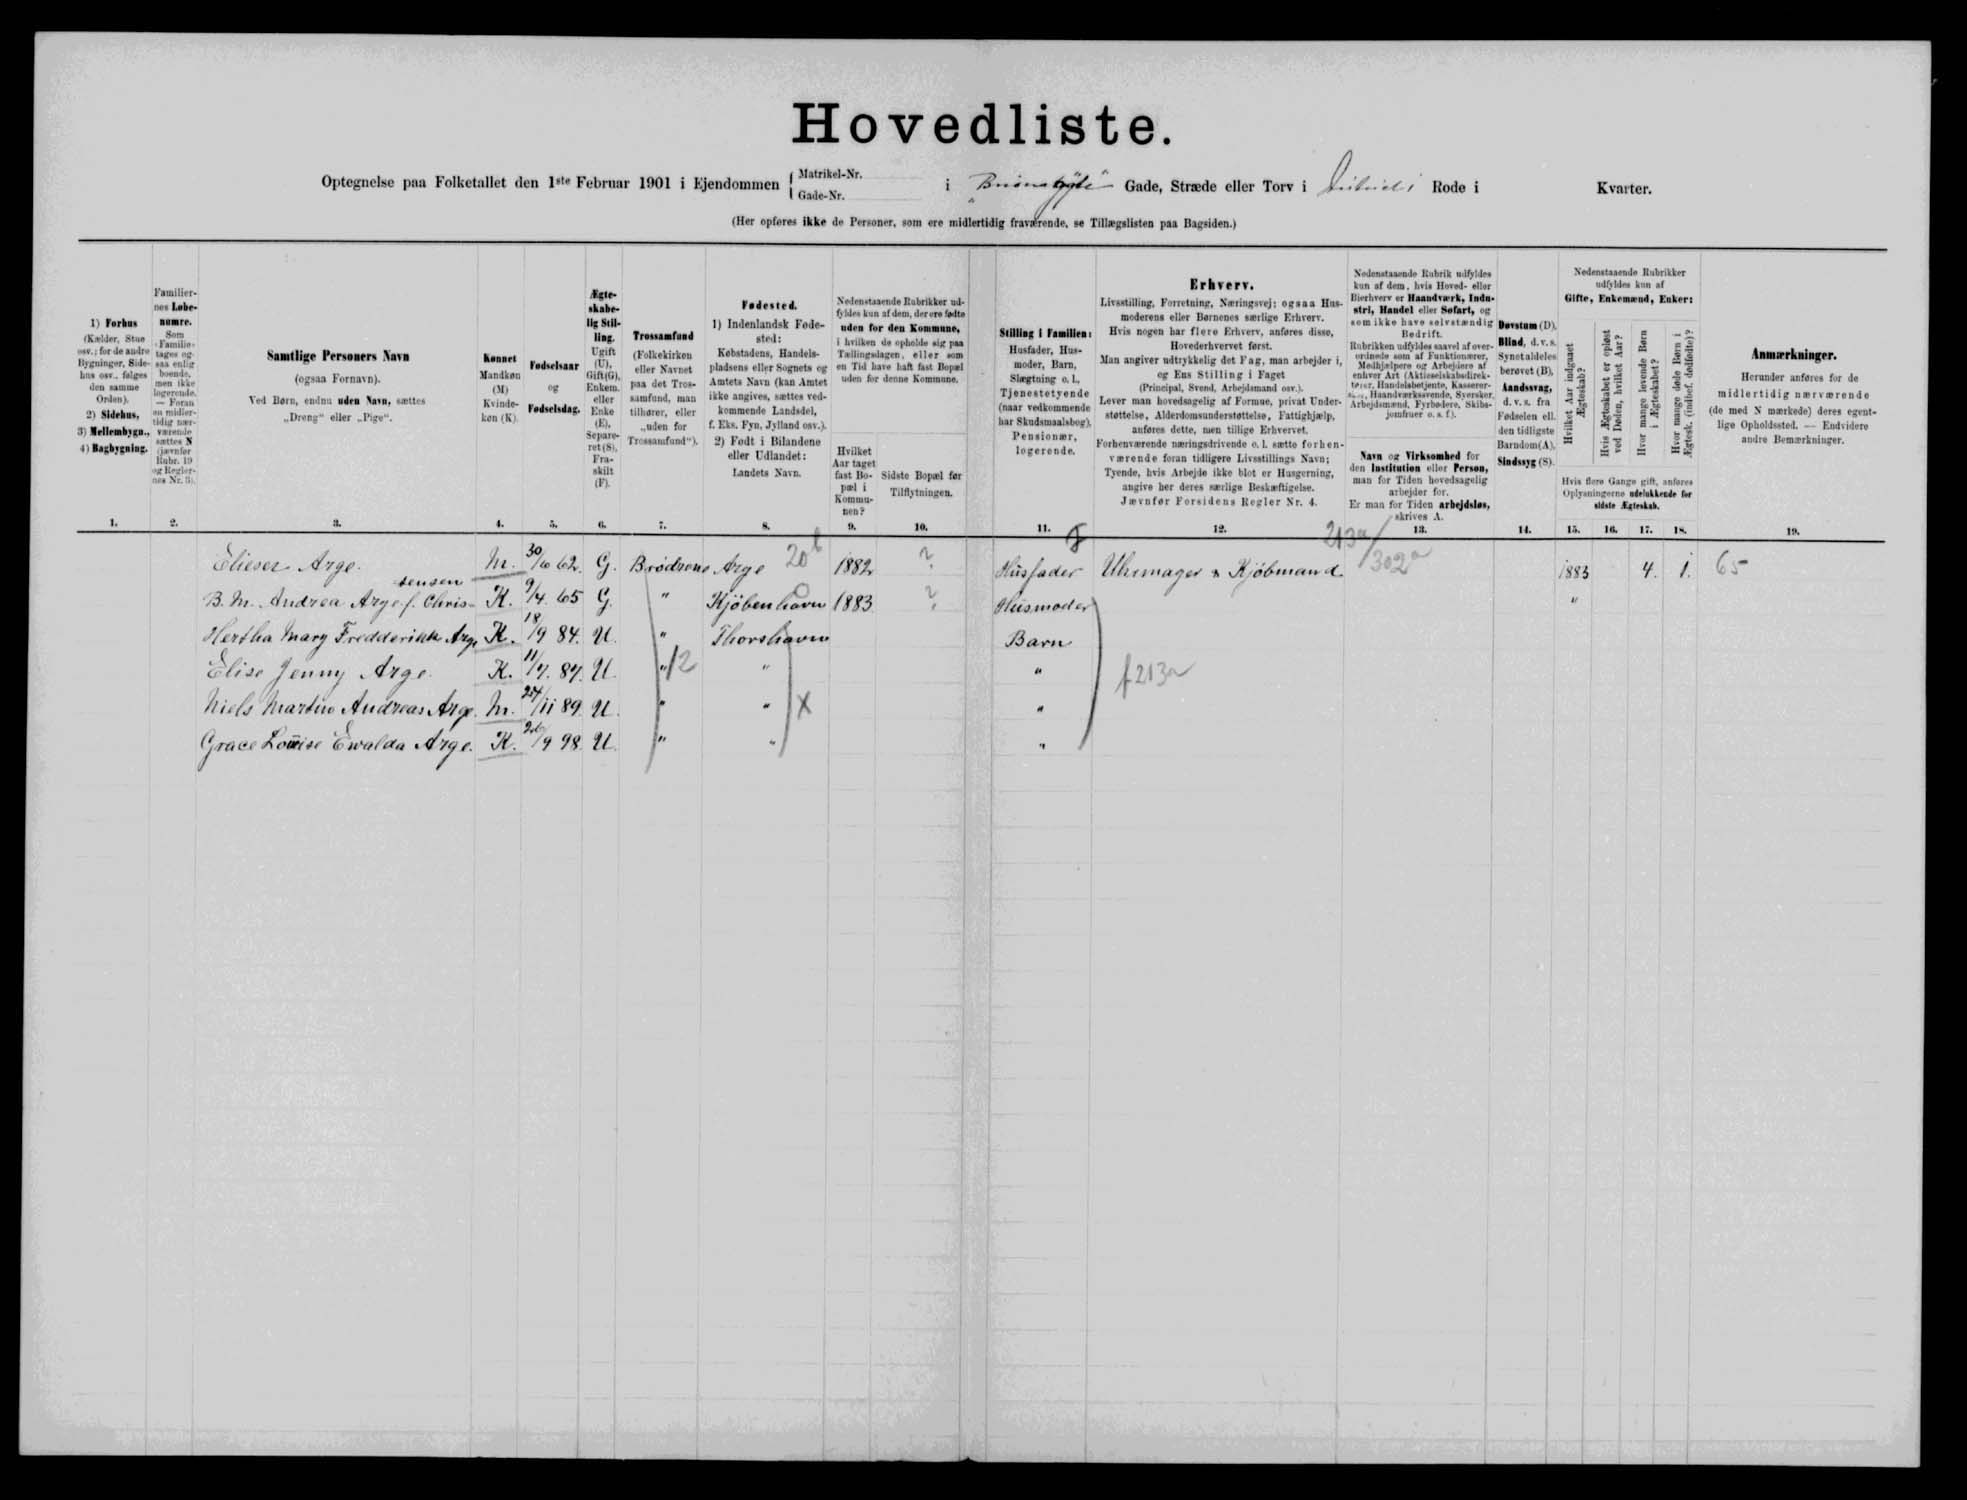 Hovedliste.
Optegnelse paa Folketallet den 1ste Februar 1901 i Ejendommen { Matrikel-Nr. i Gade, Stræde eller Torv i Rode i Kvarter.
Gade-Nr.
(Her opføres ikke de Personer, som ere midlertidig fraværende, se Tillægslisten paa Bagsiden.)
1) Forhus
(Kælder, Stue
osv.; for de andre
Bygninger, Side-
hus osv. følges
den samme
Orden).
2) Sidehus,
3) Mellembygn.,
4) Bagbygning.
1.
Familier-
nes Løbe-
numre.
Som
Familie
tages og-
saa enlig
boende,
men ikke
logerende.
— Foran
en midler-
tidig nær-
værende
sættes N
(jævnfør
Rubr. 19
og Regler-
nes Nr. 3).
2.
Samtlige Personers Navn
(ogsaa Fornavn).
Ved Børn, endnu uden Navn, sættes
„Dreng“ eller „Pige“.
3.
Kønnet
Mandkøn
(M)
Kvinde-
køn (K).
4.
Fødselsaar
og
Fødselsdag.
5.
Ægte-
skabe-
lig Stil-
ling.
Ugift
(U),
Gift(G),
Enkem.
eller
Enke
(E),
Separe-
ret(S),
Fra-
skilt
(F).
6.
Trossamfund
(Folkekirken
eller Navnet
paa det Tros-
samfund, man
tilhører, eller
„uden for
Trossamfund“).
7.
Fødested.
1) Indenlandsk Føde-
sted:
Købstadens, Handels-
pladsens eller Sognets og
Amtets Navn (kan Amtet
ikke angives, sættes ved-
kommende Landsdel,
f. Eks. Fyn, Jylland osv.).
2) Født i Bilandene
eller Udlandet:
Landets Navn.
8.
Nedenstaaende Rubrikker ud-
fyldes kun af dem, der ere fødte
uden for den Kommune,
i hvilken de opholde sig paa
Tællingsdagen, eller som
en Tid have haft fast Bopæl
uden for denne Kommune.
Hvilket
Aar taget
fast Bo-
pæl i
Kommu-
nen?
9.
Sidste Bopæl før
Tilflytningen.
10.
Stilling i Familien:
Husfader, Hus-
moder, Barn,
Slægtning o. l.,
Tjenestetyende
(naar vedkommende
har Skudsmaalsbog),
Pensionær,
logerende.
11.
Erhverv.
Livsstilling, Forretning, Næringsvej; ogsaa Hus-
moderens eller Børnenes særlige Erhverv.
Hvis nogen har flere Erhverv, anføres disse,
Hovederhvervet først.
Man angiver udtrykkelig det Fag, man arbejder i,
og Ens Stilling i Faget
(Principal, Svend, Arbejdsmand osv.).
Lever man hovedsagelig af Formue, privat Under-
støttelse, Alderdomsunderstøttelse, Fattighjælp,
anføres dette, men tillige Erhvervet.
Forhenværende næringsdrivende o. l. sætte forhen-
værende foran tidligere Livsstillings Navn;
Tyende, hvis Arbejde ikke blot er Husgerning,
angive her deres særlige Beskæftigelse.
Jævnfør Forsidens Regler Nr. 4.
12.
Nedenstaaende Rubrik udfyldes
kun af dem, hvis Hoved- eller
Bierhverv er Haandværk, Indu-
stri, Handel eller Søfart, og
som ikke have selvstændig
Bedrift.
Rubrikken udfyldes saavel af over-
ordnede som af Funktionærer,
Medhjælpere og Arbejdere af
enhver Art (Aktieselskabsdirek-
tører, Handelsbetjente, Kasserer-
sker, Haandværkssvende, Syersker,
Arbejdsmænd, Fyrbødere, Skibs-
jomfruer o. s. f.).
Navn og Virksomhed for
den Institution eller Person,
man for Tiden hovedsagelig
arbejder for.
Er man for Tiden arbejdsløs,
skrives A.
13.
Døvstum (D),
Blind, d. v. s.
Synet aldeles
berøvet (B),
Aandssvag,
d. v. s. fra
Fødselen ell.
den tidligste
Barndom(A),
Sindssyg (S).
14.
Nedenstaaende Rubrikker
udfyldes kun af
Gifte, Enkemænd, Enker:
Hvilket Aar indgaaet
Ægteskab?
Hvis Ægteskabet er opløst
ved Døden, hvilket Aar?
Hvor mange levende Børn
i Ægteskabet?
Hvor mange døde Børn i
Ægtesk. (indbef. dødfødte)?
Hvis flere Gange gift, anføres
Oplysningerne udelukkende for
sidste Ægteskab.
15. 16. 17. 18.
Anmærkninger.
Herunder anføres for de
midlertidig nærværende
(de med N mærkede) deres egent-
lige Opholdssted. — Endvidere
andre Bemærkninger.
19.
Elieser Arge. M. 30/10 62. G. Brødrene Arge 20b 1882 ? Husfader Uhrmager & Kjøbmand 213a/302a 1883 4. 1. 65
B. M. Andrea Arge f. Chris-tensen K. 9/4. 65 G. " Kjöbenhavn 1883 ? Husmoder "
Hertha Mary Fredderikke Arge K. 18/9 84. U. " Thorshavn Barn
Elise Jenny Arge. K. 11/7. 87. U. " 12 " " f213a
Niels Martin Andreas Arge. M. 24/11 89. U. " " X "
Grace Louise Ewalda Arge. K. 26/9 98. U. " " "